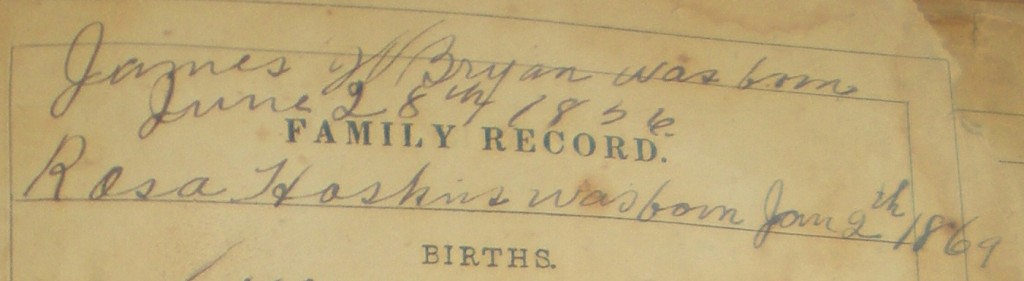 James W Bryan was born
June 28th 1856.
FAMILY RECORD.
Rosa Hoskins was born Jan 2th 1869
BIRTHS.